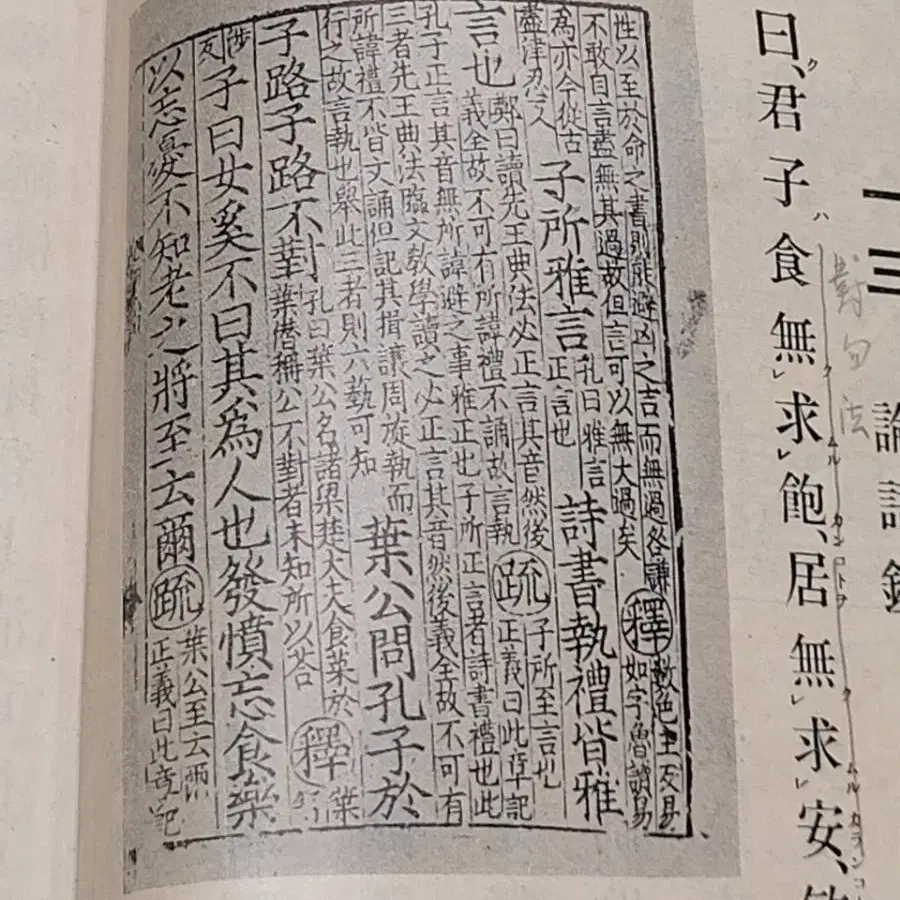 一三
論語
對句法
曰、君子食無求飽、居無求安、
性以至於命之書則能避凶之吉而無過咎謙
不敢自言盡無其過故但言可以無大過矣
釋
數色主反易
如字魯讀易
為亦今從古
盡津忍又
子所雅言
孔曰雅言
正言也
詩書執禮皆雅
言也
鄭曰讀先王典法必正言其音然後
義全故不可有所諱禮不誦故言執
疏
子所至言也
正義曰此章記
孔子正言其音無所諱避之事雅正也子所正言者詩書禮也此
三者先王典法臨文教學讀之必正言其音然後義全故不可有
所諱禮不皆文誦但記其揖讓周旋執而
行之故言執也舉此三者則六藝可知
葉公問孔子於
子路子路不對
孔曰葉公名諸梁楚大夫食菜於
葉僭稱公不對者未知所以荅
釋
葉
涉
反
子曰女奚不曰其為人也發憤忘食樂
以忘憂不知老之將至云爾
疏
葉公至云爾
正義曰此章記